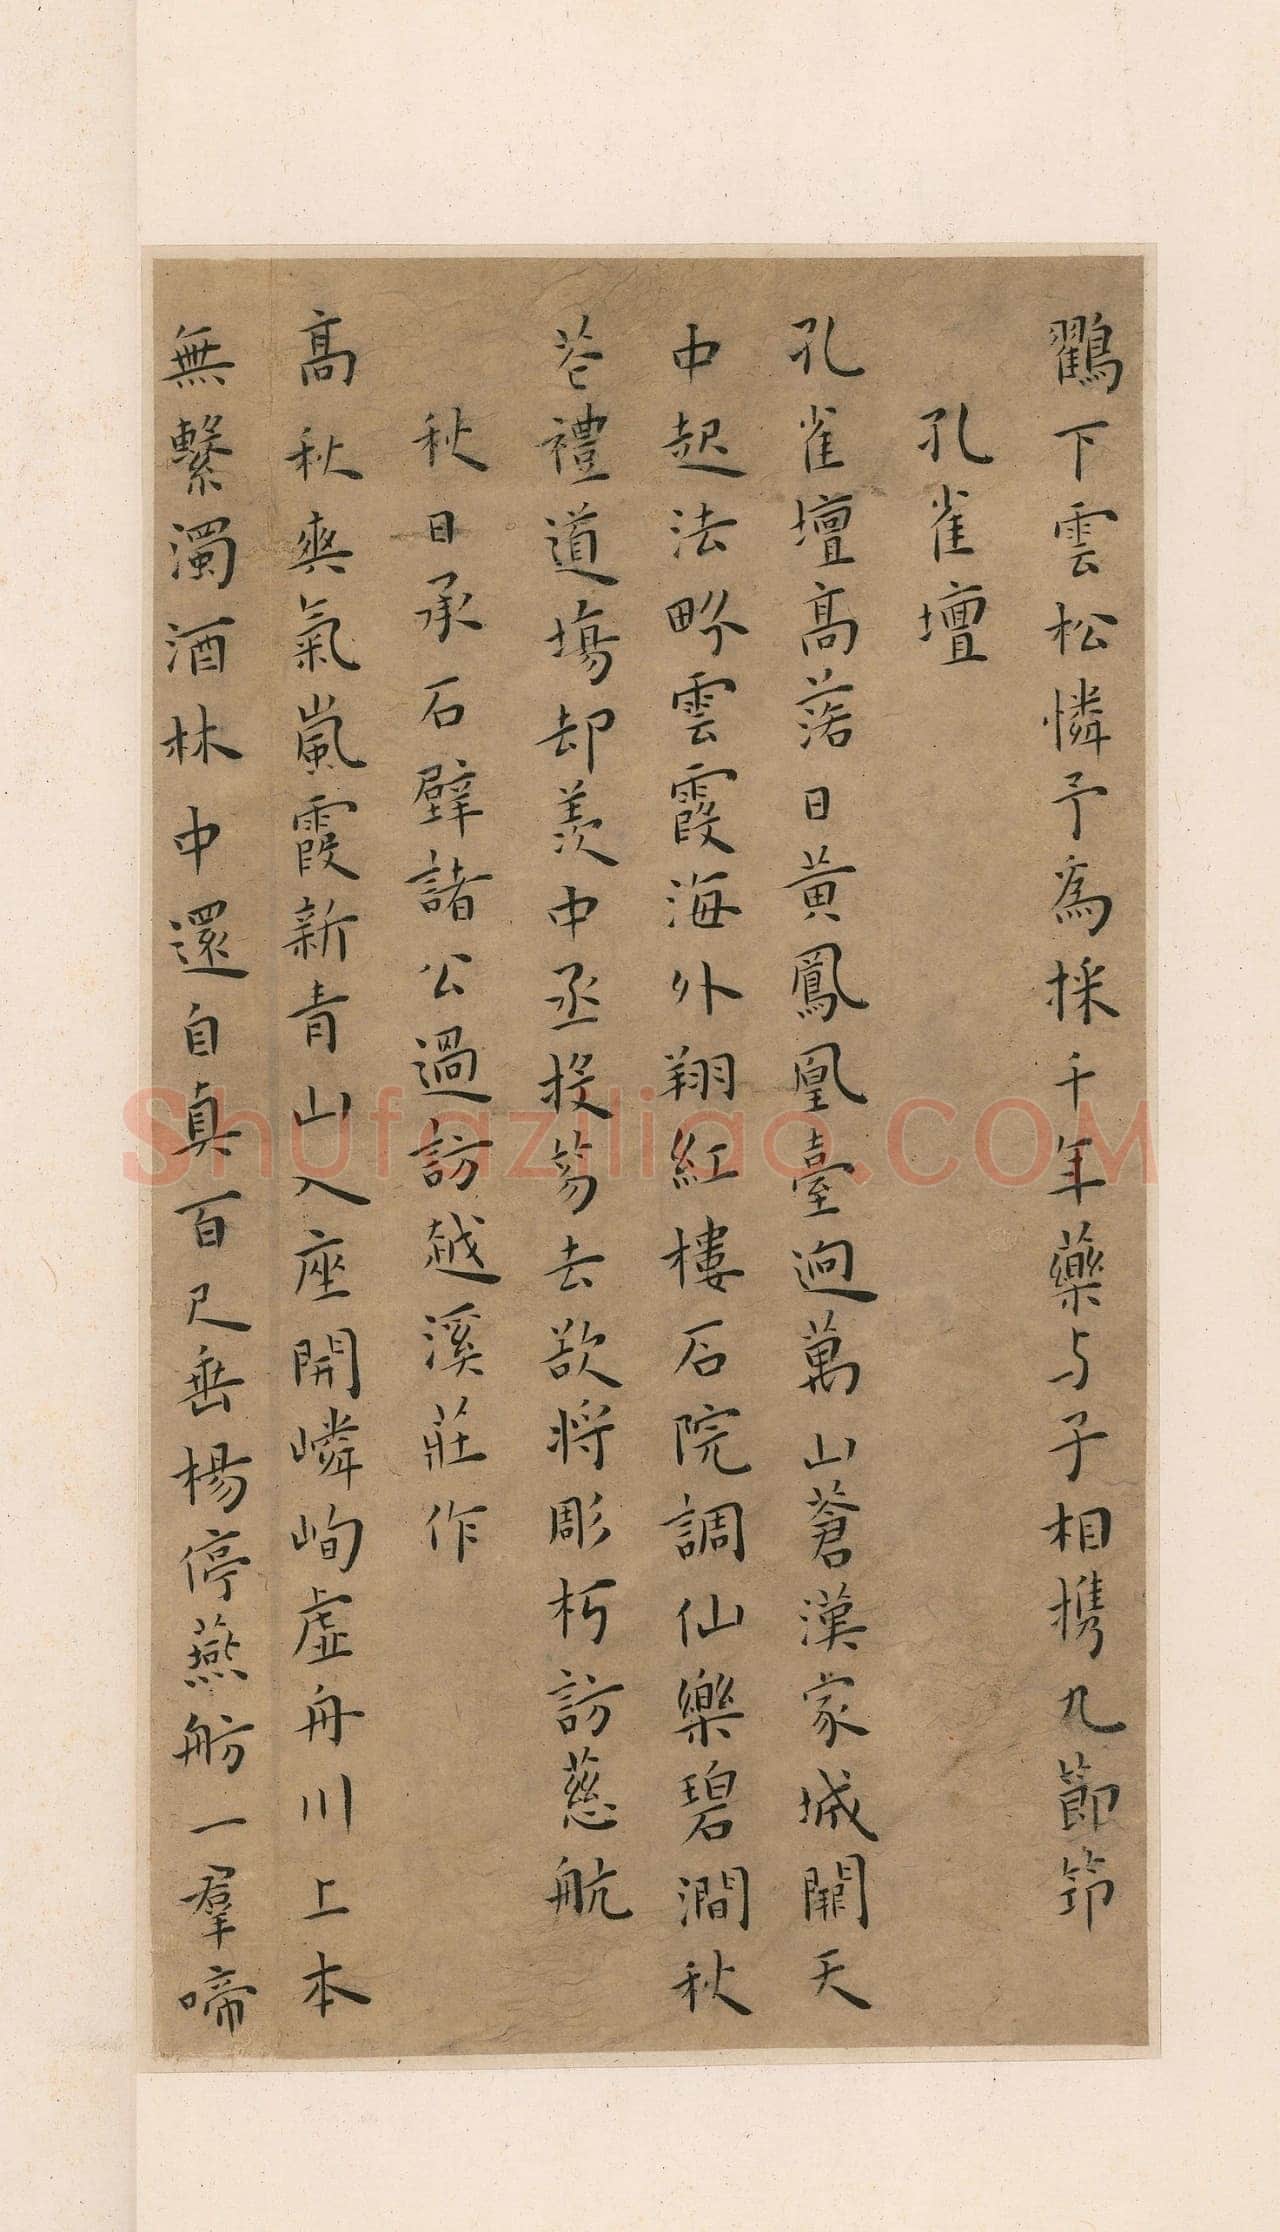 鶴下雲松憐予為採千年藥与子相携九節筇
孔雀壇
孔雀壇高落日黃鳳凰臺迥萬山蒼漢家城闕天
中起法畍雲霞海外翔紅樓石院調仙樂碧澗秋
芲禮道場却羨中丞投笏去欲將彫朽訪慈航
秋日承石壁諸公過訪越溪莊作
高秋爽氣嵐霞新青山入座開嶙峋虛舟川上本
無繫濁酒林中還自真百尺垂楊停燕舫一羣啼
Shufaziliao.COM